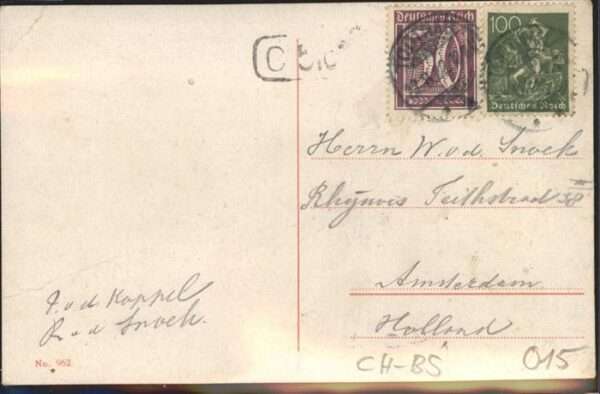 Deutsches Reich
50
100
Deutsches Reich
Herrn W. v. d. Snoek
Rhijnvis Feithstraat 38 III
Amsterdam
Holland
F. v d Koppel
R. v d Snoek.
No. 962.
CH-BS 015